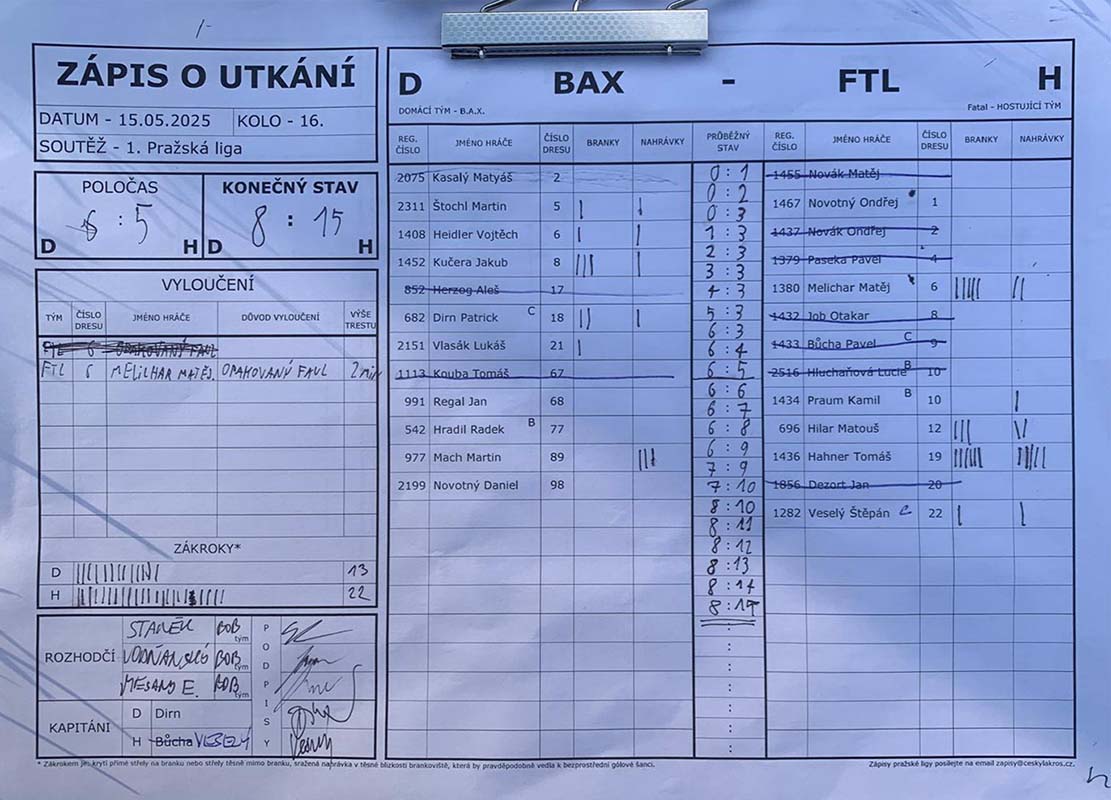 ZÁPIS O UTKÁNÍ
DATUM - 15.05.2025 KOLO - 16.
SOUTĚŽ - 1. Pražská liga
POLOČAS KONEČNÝ STAV
6 : 5 8 : 15
D H D H
VYLOUČENÍ
TÝM ČÍSLO DRESU JMÉNO HRÁČE DŮVOD VYLOUČENÍ VÝŠE TRESTU
FTL 6 OPAKOVANÝ FAUL
FTL 6 MELILHAR MATĚJ. OPAKOVANÝ FAUL 2 min
ZÁKROKY*
D 13
H 22
ROZHODČÍ
STANĚK BOB tým
VODŇANSKÝ BOB tým
MESANY E. BOB tým
PODPISY
KAPITÁNI
D Dirn
H Bůcha VESELÝ
D BAX - FTL H
DOMÁCÍ TÝM - B.A.X. Fatal - HOSTUJÍCÍ TÝM
REG. ČÍSLO JMÉNO HRÁČE ČÍSLO DRESU BRANKY NAHRÁVKY PRŮBĚŽNÝ STAV REG. ČÍSLO JMÉNO HRÁČE ČÍSLO DRESU BRANKY NAHRÁVKY
2075 Kasalý Matyáš 2
2311 Štochl Martin 5 | |
1408 Heidler Vojtěch 6 | |
1452 Kučera Jakub 8 ||| |
852 Herzog Aleš 17
682 Dirn Patrick C 18 || |
2151 Vlasák Lukáš 21 |
1113 Kouba Tomáš 67
991 Regal Jan 68
542 Hradil Radek B 77
977 Mach Martin 89 |||
2199 Novotný Daniel 98
0 : 1
0 : 2
0 : 3
1 : 3
2 : 3
3 : 3
4 : 3
5 : 3
6 : 3
6 : 4
6 : 5
6 : 6
6 : 7
6 : 8
6 : 9
7 : 9
7 : 10
8 : 10
8 : 11
8 : 12
8 : 13
8 : 14
8 : 15
1455 Novák Matěj
1467 Novotný Ondřej 1
1437 Novák Ondřej 2
1379 Paseka Pavel 4
1380 Melichar Matěj 6 ||||| ||
1432 Job Otakar 8
1433 Bůcha Pavel C 9
2516 Hluchaňová Lucie B 10
1434 Praum Kamil B 10 |
696 Hilar Matouš 12 ||| ||
1436 Hahner Tomáš 19
1856 Dezort Jan 20
1282 Veselý Štěpán C 22 | |
* Zákrokem je: krytí přímé střely na branku nebo střely těsně mimo branku, sražená nahrávka v těsné blízkosti brankoviště, která by pravděpodobně vedla k bezprostřední gólové šanci.
Zápisy pražské ligy posílejte na email zapisy@ceskylakros.cz.